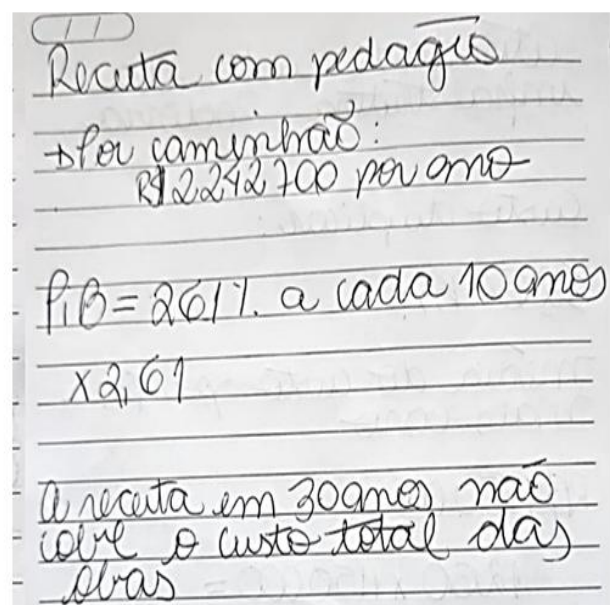 11
Receita com pedágio
→ Por caminhão:
R$ 2.242.700 por ano
PiB = 261%. a cada 10 anos
x2,61
A receita em 30 anos não
cobre o custo total das
obras